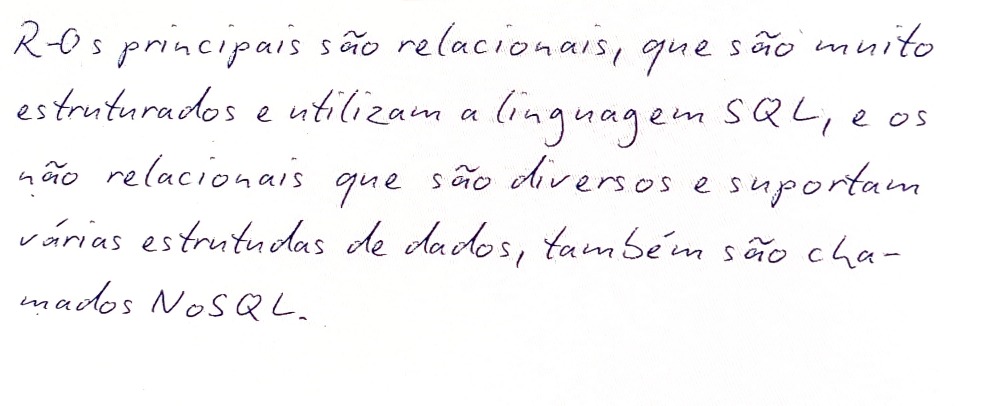 R-Os principais são relacionais, que são muito
estruturados e utilizam a linguagem SQL, e os
não relacionais que são diversos e suportam
várias estrutudas de dados, também são cha-
mados NoSQL.